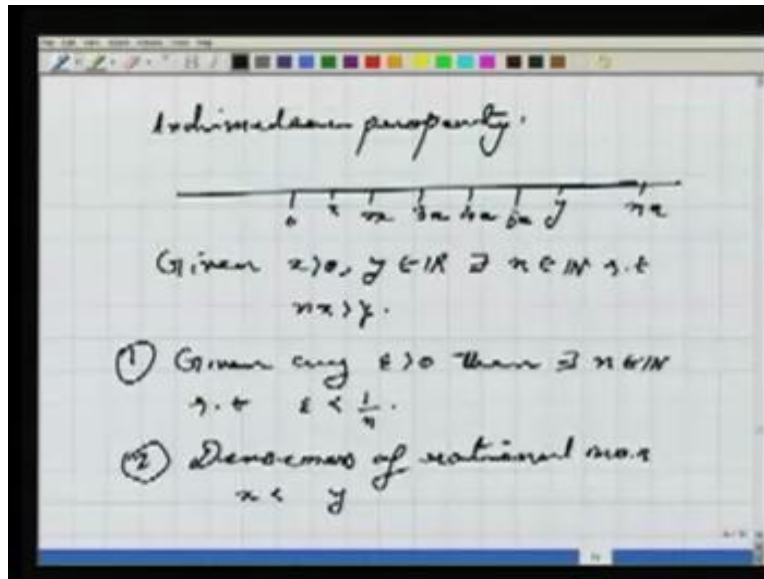 Archimedean property.
0 x 2x 3x 4x 5x y nx
Given x>0, y ∈ IR ∃ n ∈ IN s.t
nx > y.
① Given any ε>0 then ∃ n ∈ IN
s.t ε < 1/n.
② Denseness of rational nos.
x < y